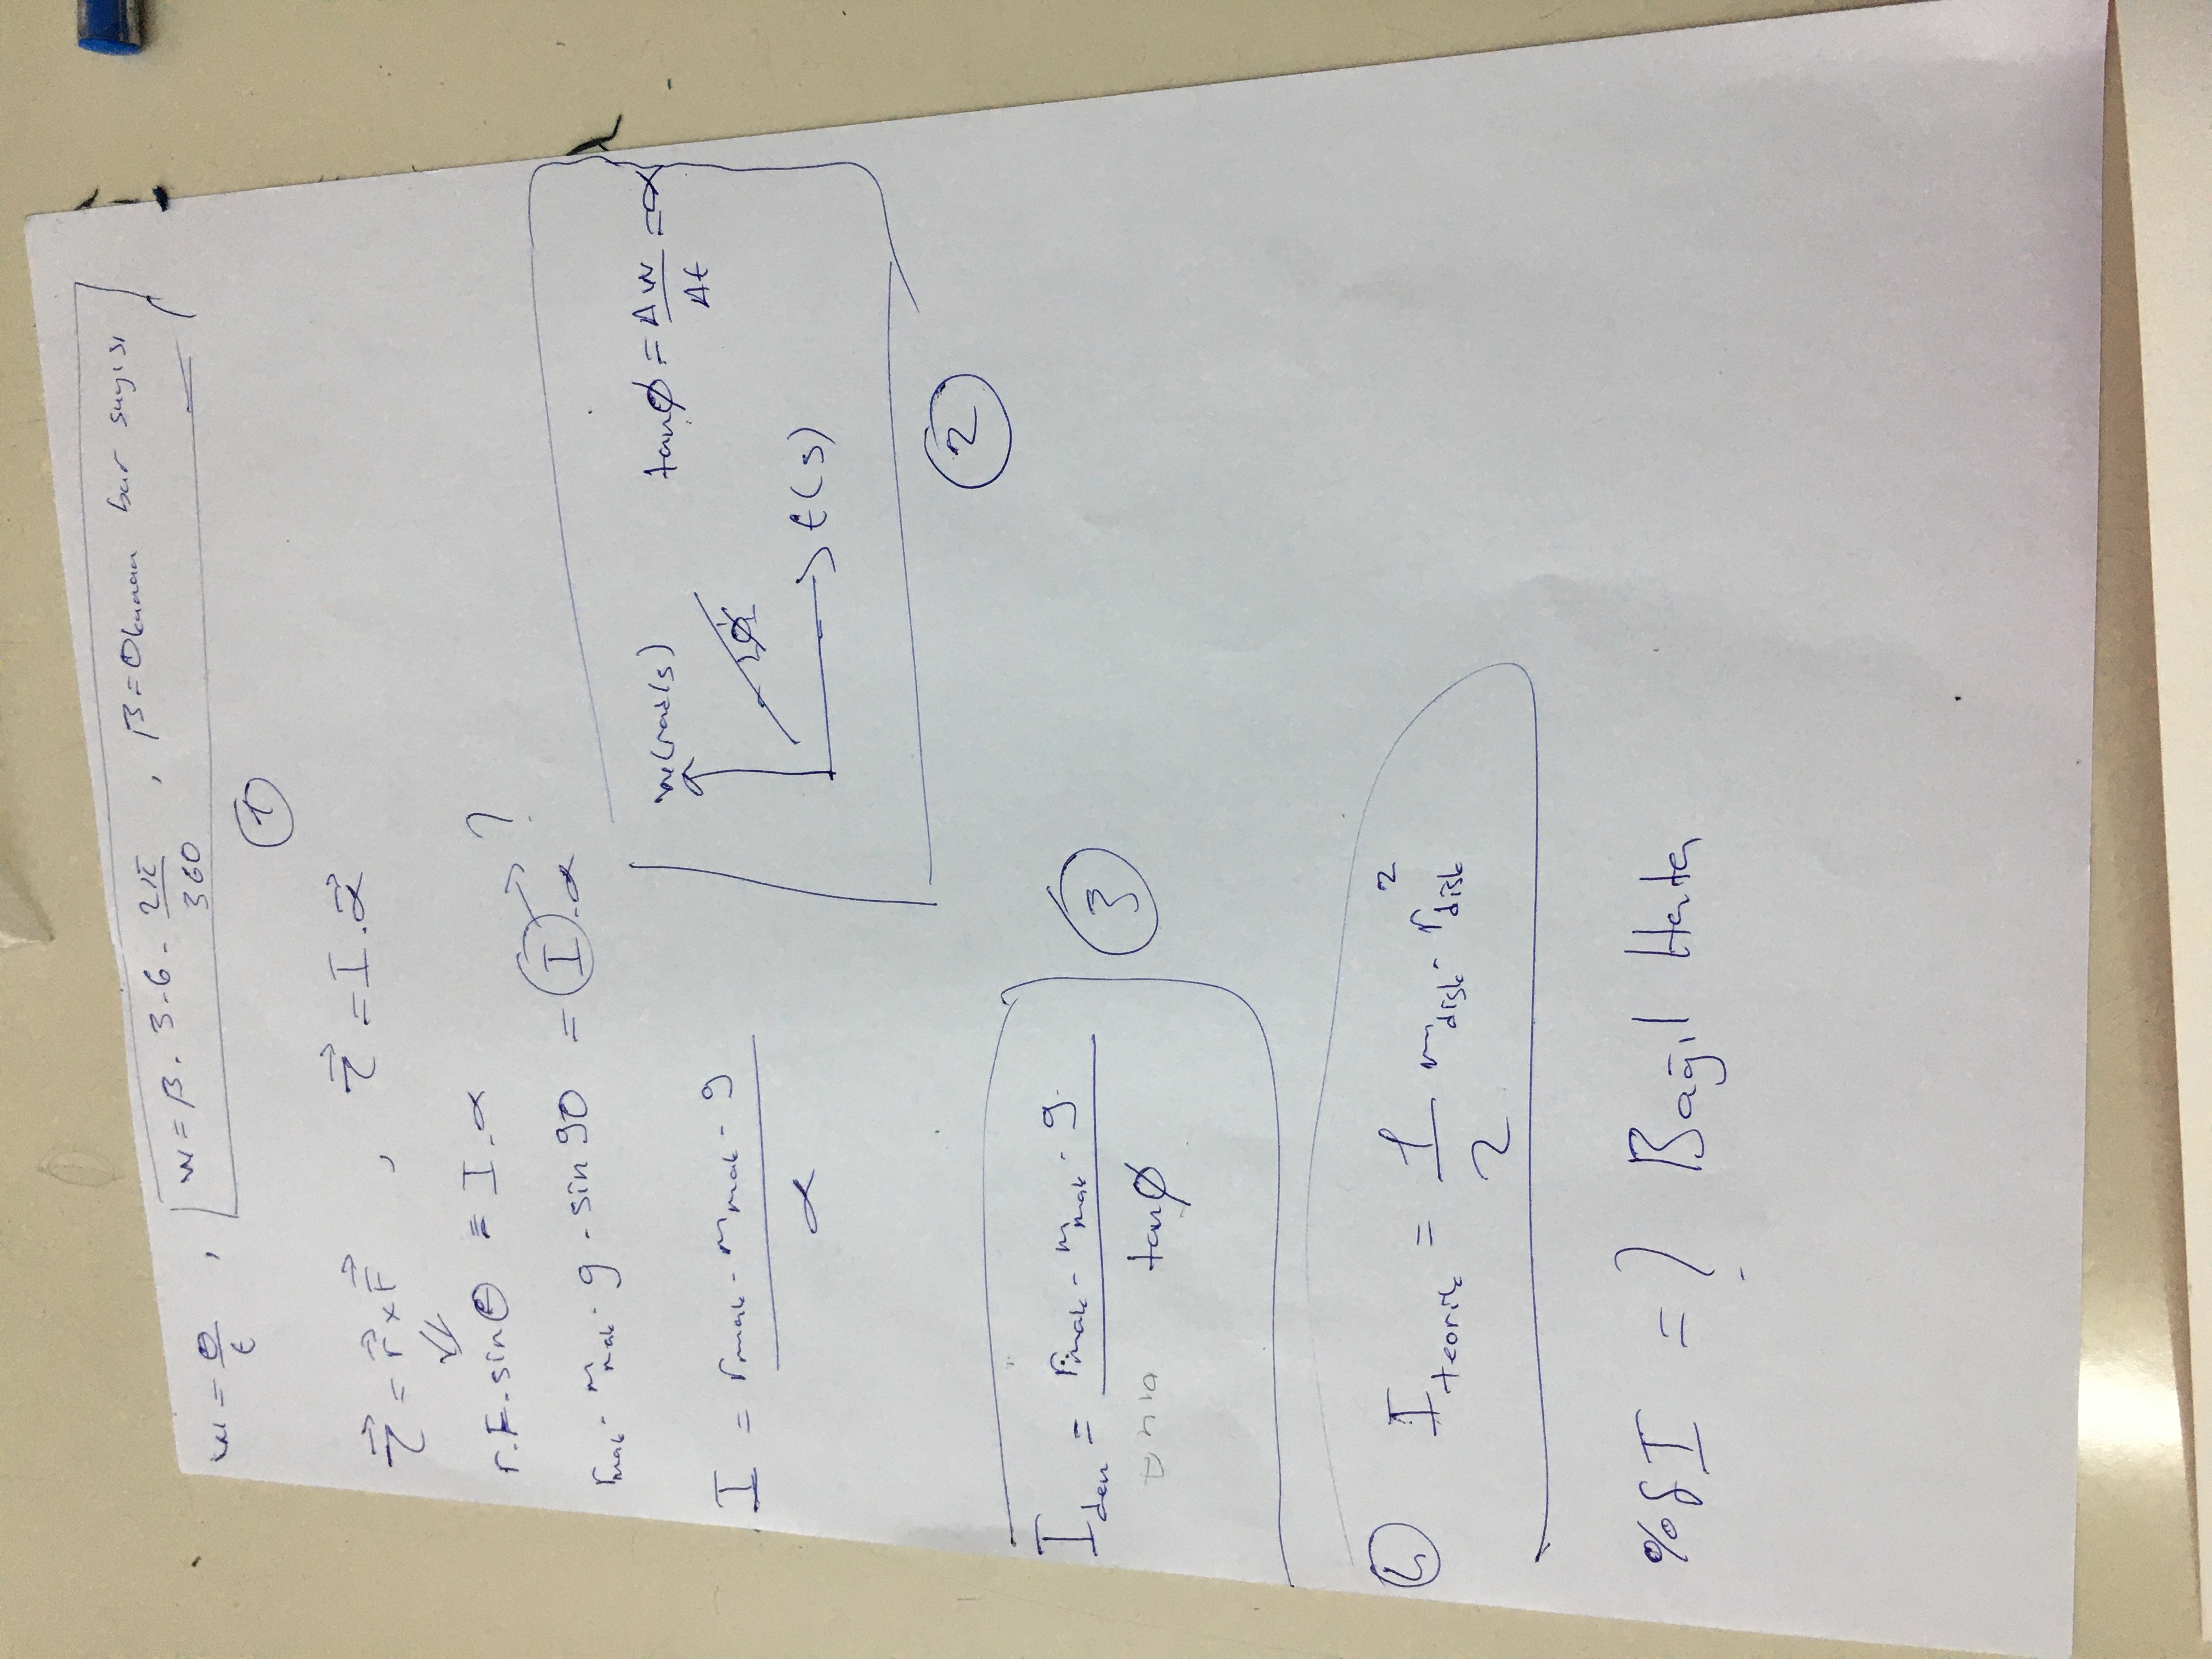 w = θ/t , w = β . 3 - 6 - 2π/360 , β = Okunan bar sayısı
1
τ⃗ = r⃗ x F⃗ , τ⃗ = I . α⃗
⇓
r . F . sin θ = I . α
r_mak . m_mak . g . sin 90 = I . α → ?
w(rad/s) tan∅ = Δw/Δt = α
∅
t(s)
I = r_mak . m_mak . g / α
2
I_den = r_mak . m_mak . g / tan∅
3
4 I_teorik = 1/2 m_disk . r_disk²
%δI = ? Bağıl Hata